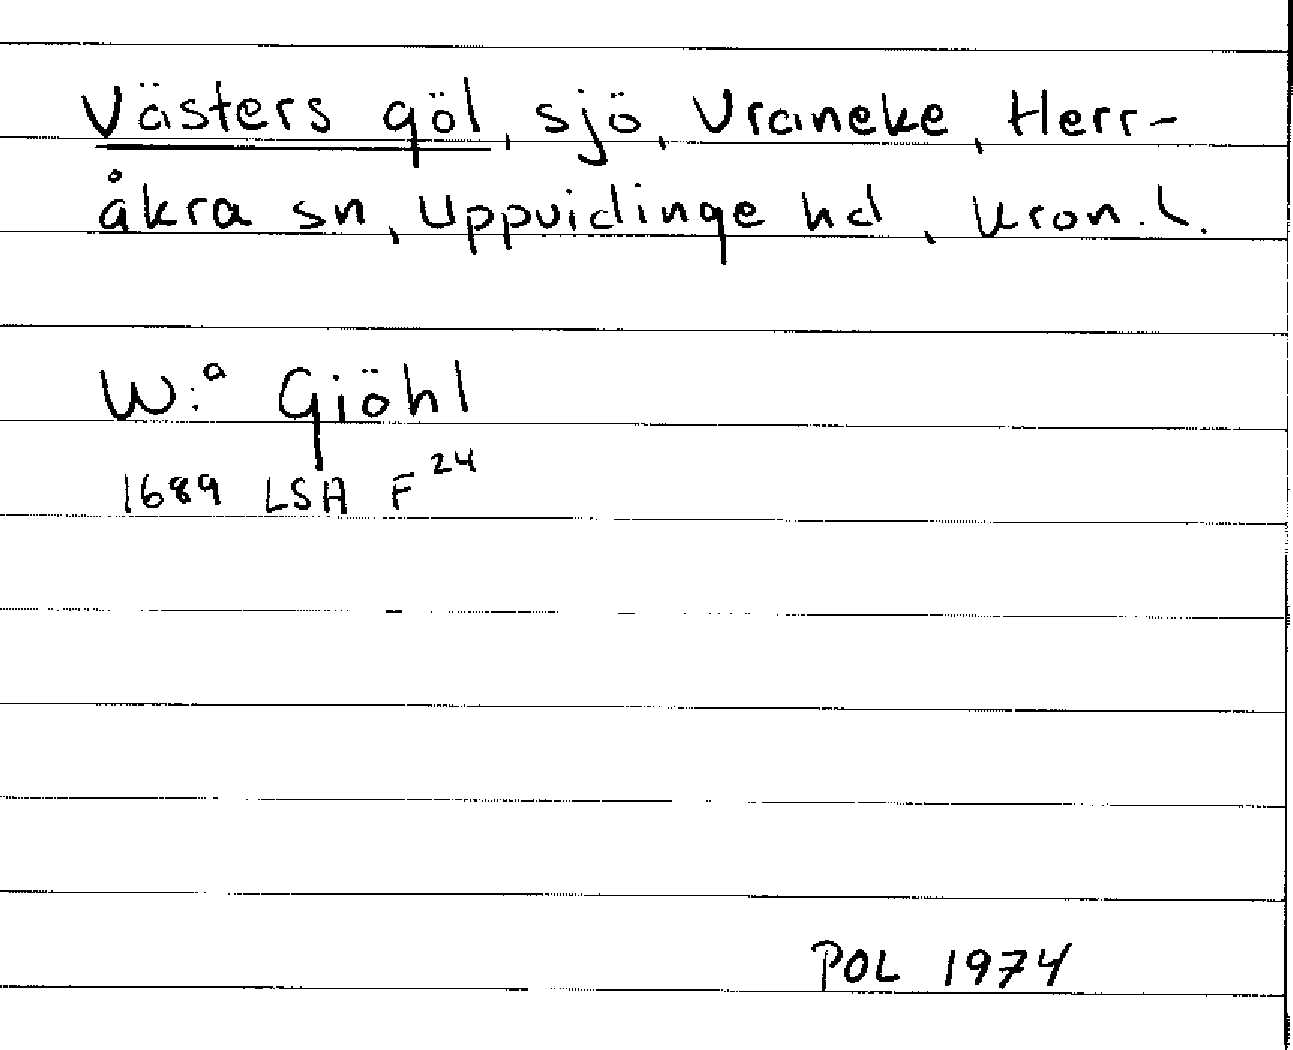 Västers göl, sjö, Vraneke, Herr-
åkra sn, Uppvidinge hd, Kron. l.
W:a Gjöhl
1689 LSA F24
POL 1974